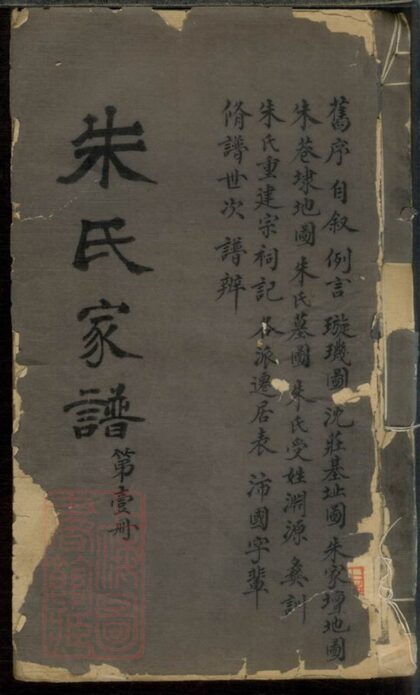 舊序 自叙 例言 璇璣圖 沈莊基址圖 朱家埠地圖
朱巷埭地圖 朱氏墓圖 朱氏受姓淵源 彝訓
朱氏重建宗祠記 各派遷居表 沛國字輩
脩譜世次 譜辯
朱氏家譜
第壹册